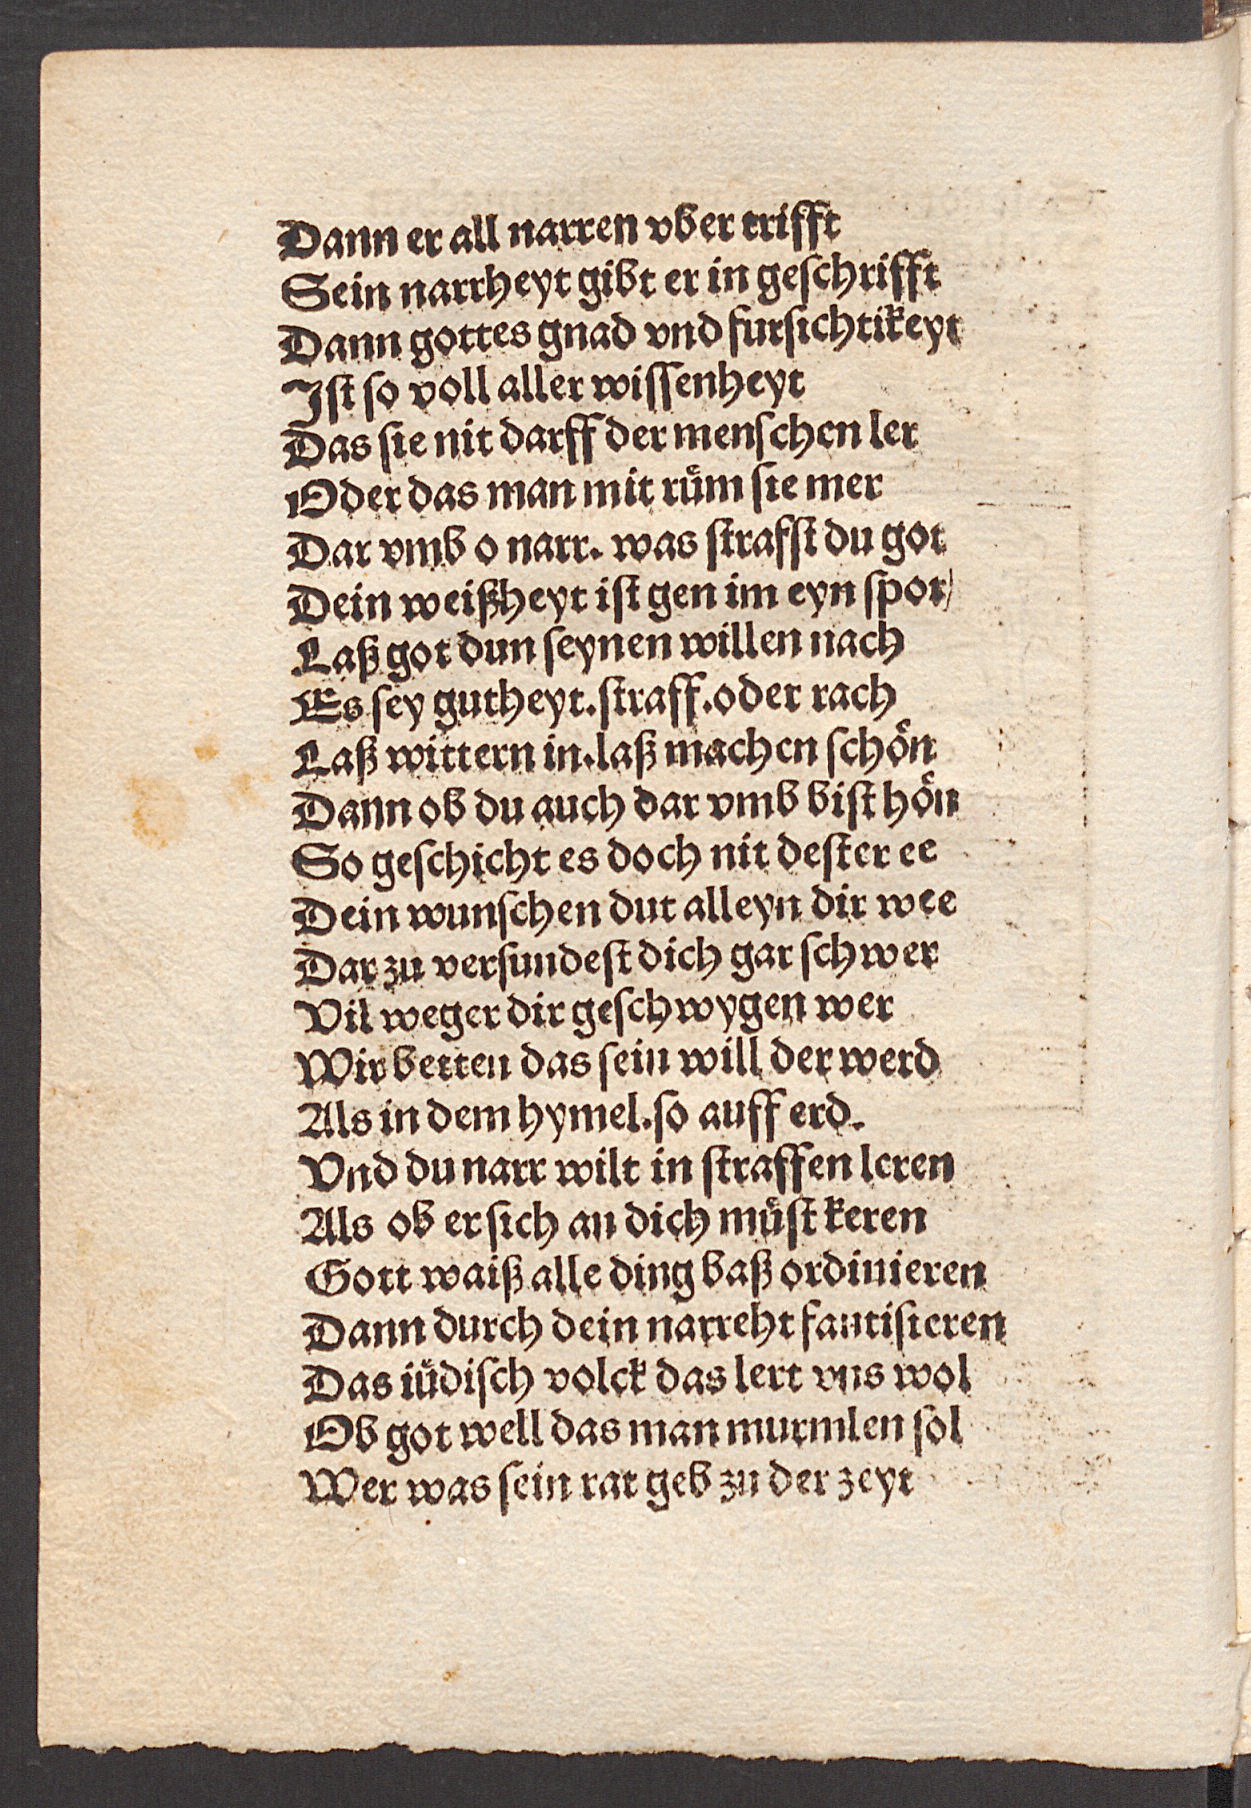 Dann er all narren vber trifft
Sein narrheyt gibt er in geſchrifft
Dann gottes gnad vnd furſichtikeyt
Iſt ſo voll aller wiſſenheyt
Das ſie nit darff der menſchen ler
Oder das man mit ruͤm ſie mer
Dar vmb o narr. was ſtrafſt du got
Dein weißheyt iſt gen im eyn ſpot
Laß got dun ſeynen willen nach
Es ſey gutheyt. ſtraff. oder rach
Laß wittern in. laß machen ſchoͤn
Dann ob du auch dar vmb biſt hoͤn
So geſchicht es doch nit deſter ee
Dein wunſchen dut alleyn dir wee
Dar zu verſundeſt dich gar ſchwer
Vil weger dir geſchwygen wer
Wir betten das ſein will der werd
Als in dem hymel. ſo auff erd.
Vnd du narr wilt in ſtraffen leren
Als ob er ſich an dich muͤſt keren
Gott waiß alle ding baß ordinieren
Dann durch dein narreht fantiſieren
Das iuͤdiſch volck das lert vns wol
Ob got well das man murmlen ſol
Wer was ſein rat geb zu der zeyt